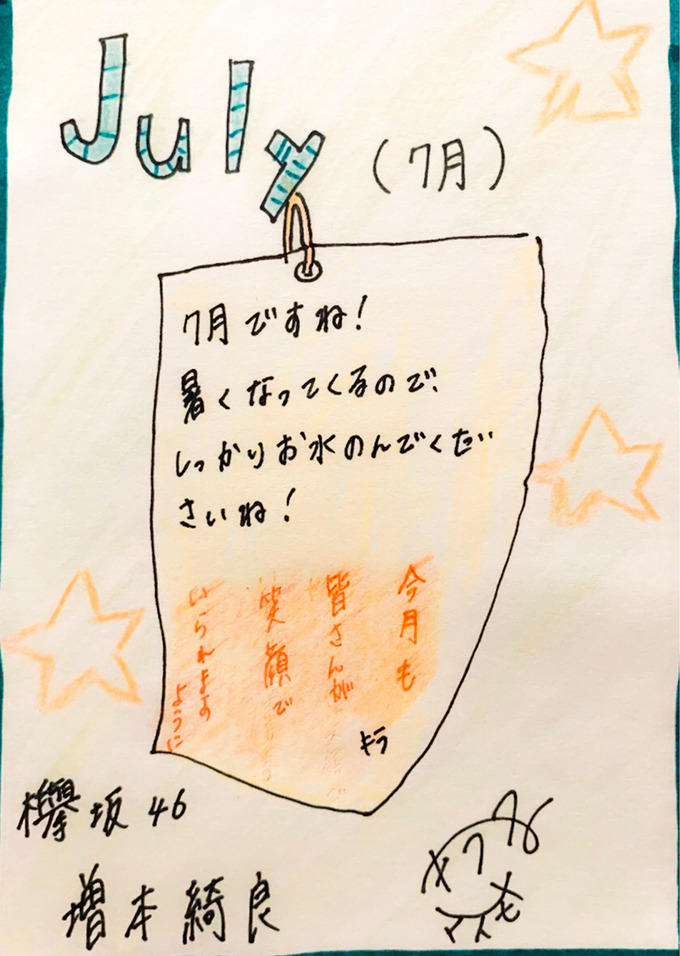 July
(7月)
7月ですね!
暑くなってくるので、
しっかりお水のんでくだ
さいね!
今月も
皆さんが
笑顔で
いられます
ように
キラ
欅坂46
増本綺良